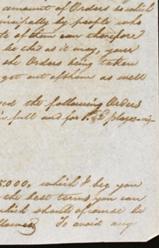 amount of Orders to which
principally by people who
of them can therefore
be this as it may, your
the Orders being taken
got out of them as well
the following Orders
in full and for
5.000, which I beg you
the best terms you can
which should of course be
To avoid any